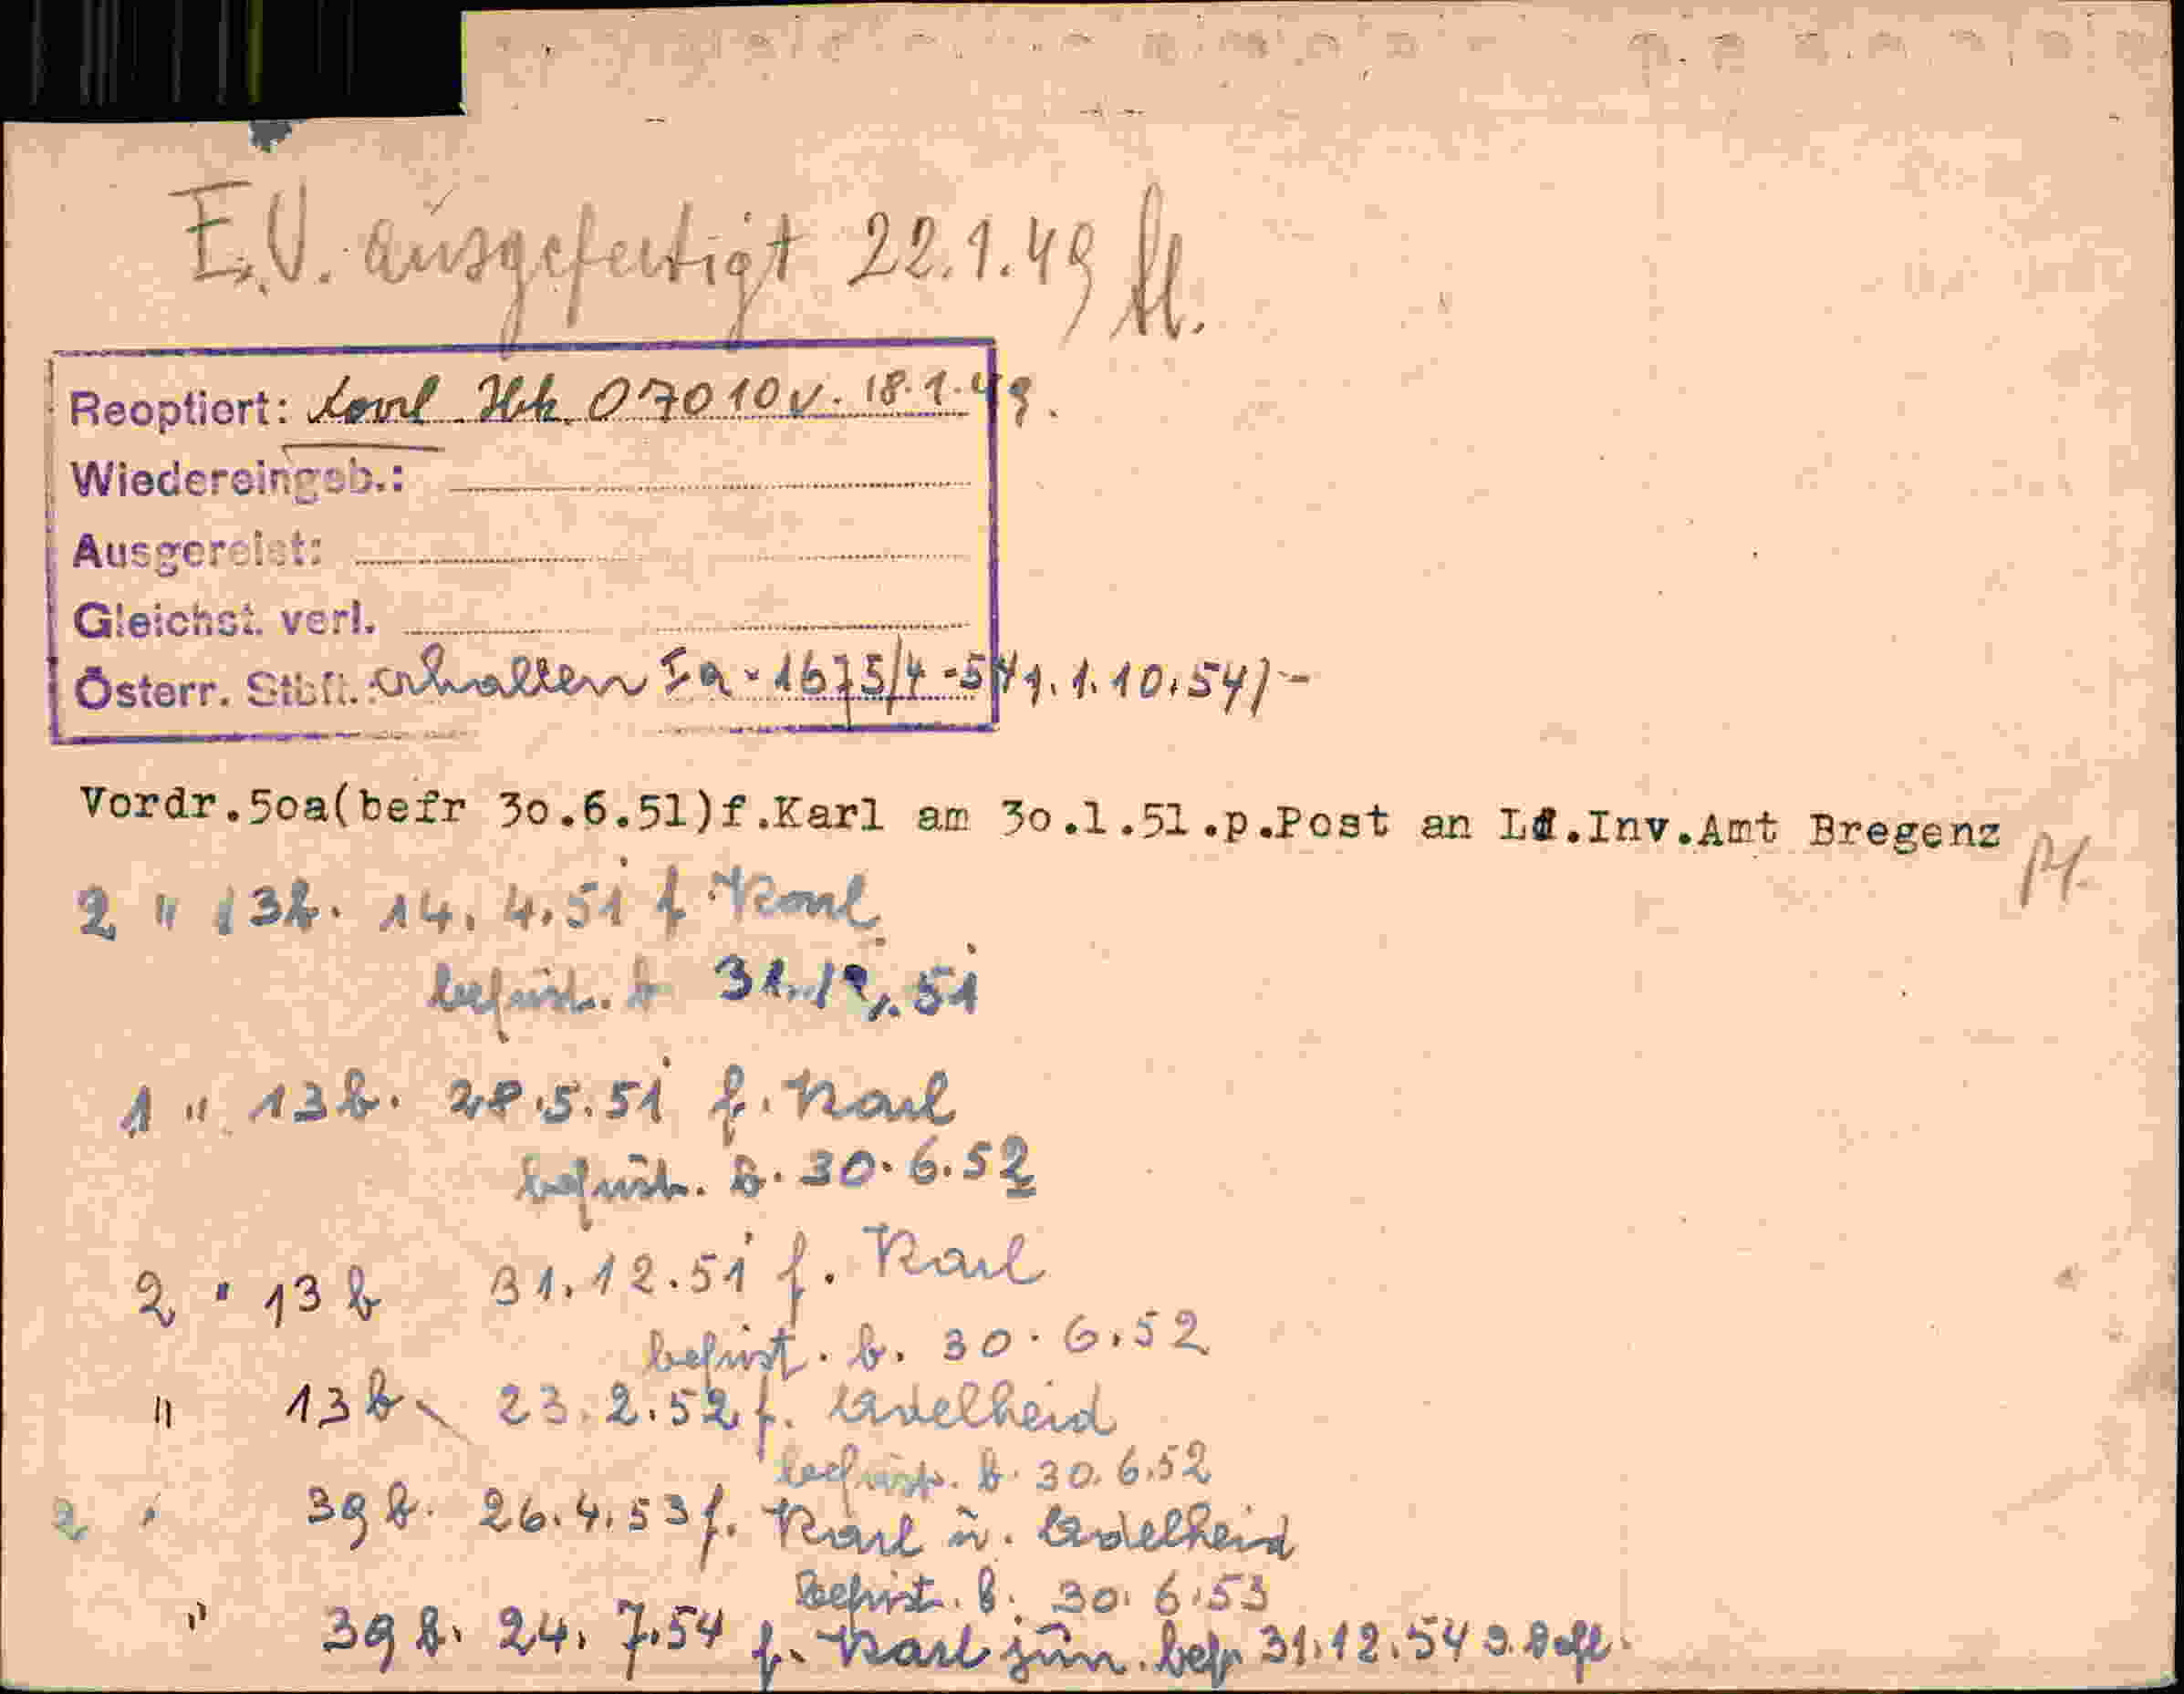 E.V. ausgefertigt 22.1.49
Reoptiert: laut 07010 v. 18.1.49.
Wiedereingeb.:
Ausgereist:
Gleichst. verl.
Österr. Stbft. erhalten Ia-1675/4-54 1.10.54)-
Vordr.50a(befr 30.6.51)f.Karl am 30.1.51.p.Post an Ld.Inv.Amt Bregenz
2 " 13b. 14.4.51 f Karl
befrist. b 31.12.51
1 " 13b. 28.5.51 f. Karl
befrist. b. 30.6.52
2 " 13b 31.12.51 f. Karl
befrist. b. 30.6.52
" 13b 23.2.52 f. Adelheid
befrist. b. 30.6.52
2 " 39b. 26.4.53 f. Karl u. Adelheid
befrist. b. 30.6.53
" 39b. 24.7.54 f. Karl jun. befr 31.12.54